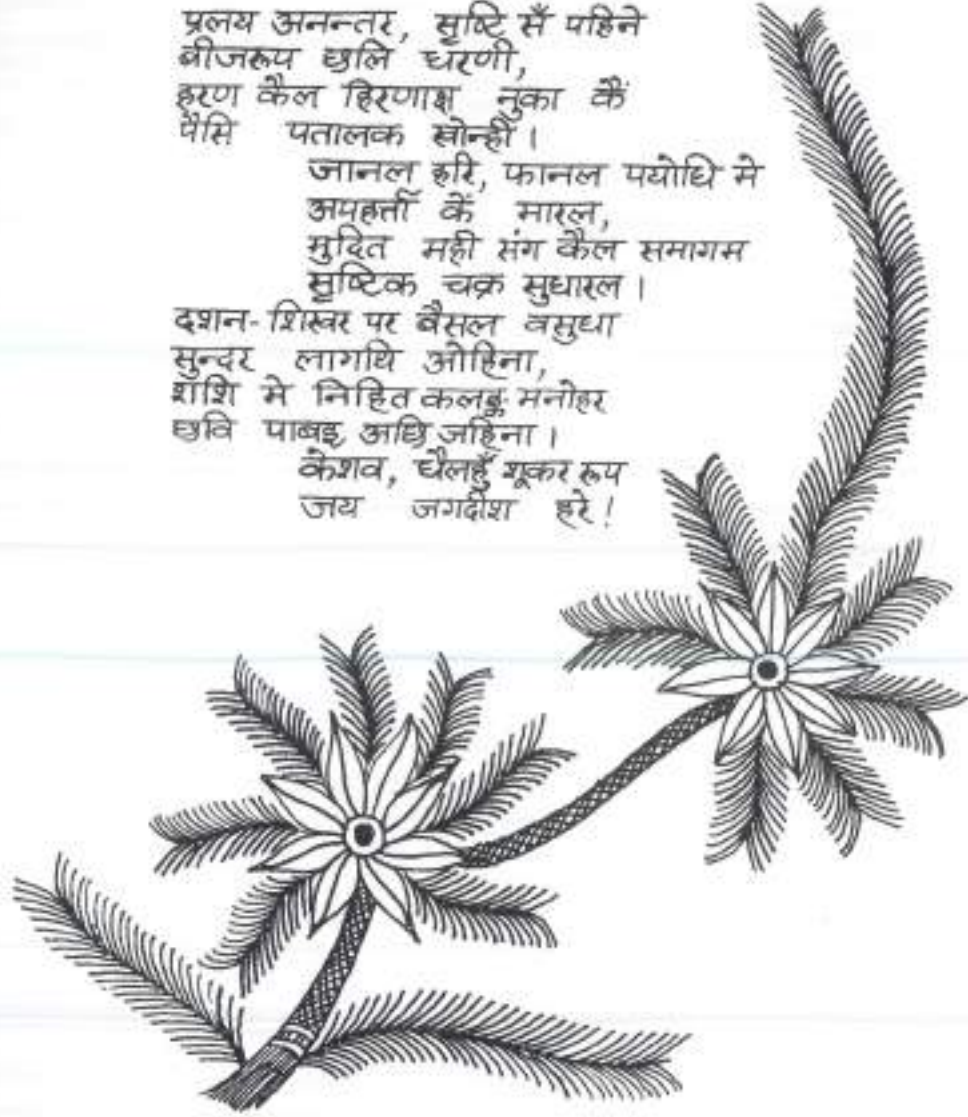 प्रलय अनन्तर, सृष्टि सँ पहिने
बीजरूप छलि धरणी,
हरण कैल हिरणाक्ष नुका कैँ
पैसि पतालक खोन्ही।
जानल हरि, फानल पयोधि मे
अपहर्त्ता कें मारल,
मुदित मही संग कैल समागम
सृष्टिक चक्र सुधारल।
दशन-शिखर पर बैसल वसुधा
सुन्दर लागथि ओहिना,
शशि मे निहित कलङ्क मनोहर
छवि पाबइ अछि जहिना।
केशव, धैलहुँ शूकर रूप
जय जगदीश हरे!